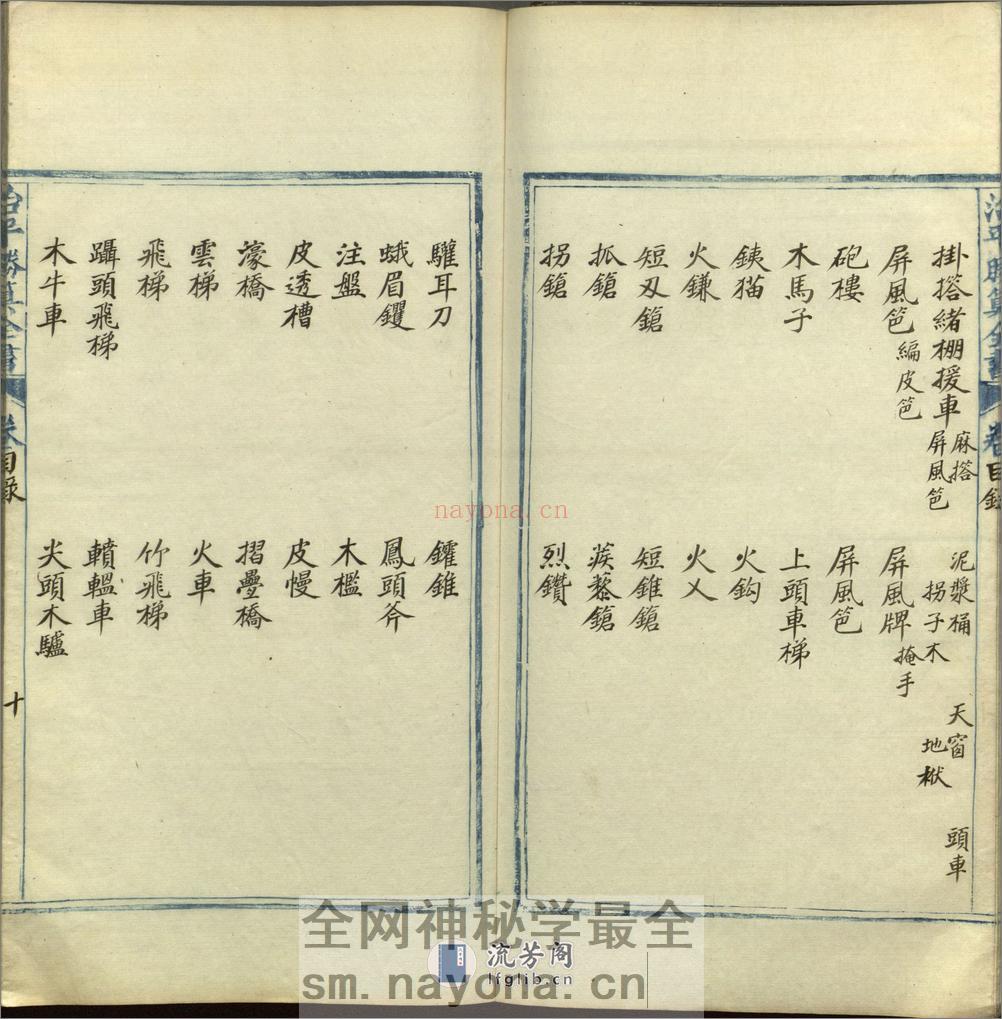 掛搭緒棚援車 麻搭 屏風笆 泥漿桶 拐子木 天窗 地栿 頭車
屏風笆 編皮笆 屏風牌 掩手
砲樓 屏風笆
木馬子 上頭車梯
銕猫 火鈎
火鎌 火乂
短刄鎗 短錐鎗
抓鎗 蒺藜鎗
拐鎗 烈鑽
驩耳刀 鑵錐
蛾眉钁 鳳頭斧
注盤 木檻
皮透槽 皮幔
濠橋 摺疊橋
雲梯 火車
飛梯 竹飛梯
躡頭飛梯 轒轀車
木牛車 尖頭木驢
治平勝算全書 卷 目錄
十
nayona.cn
全网神秘学最全
流芳阁
lfglib.cn
sm.nayona.cn